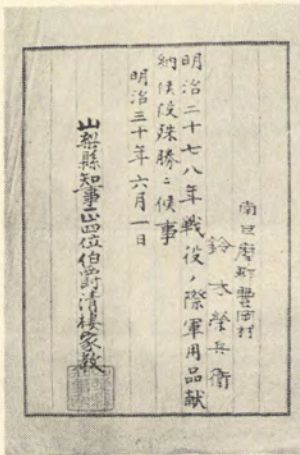 南巨摩郡豊岡村
鈴木熊兵衛
明治二十七八年戦役ノ際軍用品献
納候段殊勝ニ候事
明治三十年六月一日
山梨縣知事正四位伯爵清棲家教